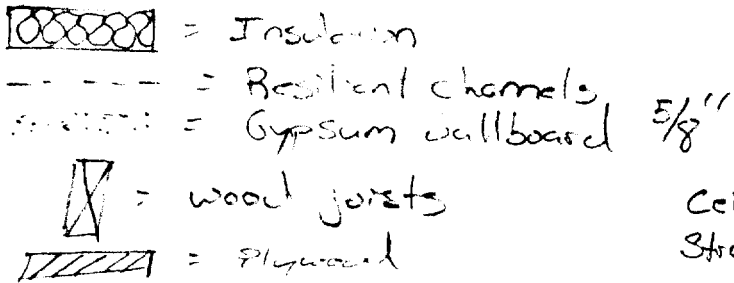 = Insulation
= Resilient channels
= Gypsum wallboard 5/8"
= wood joists
= Plywood
Cei
Stre